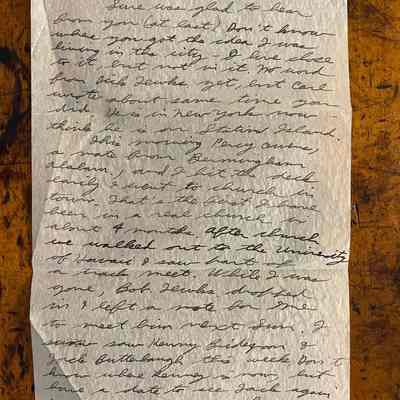 Sure was glad to hear
from you (at last) Don't know
where you got the idea I was
living in the city. I live close
to it but not in it. No word
from Dick Jenks yet, but Carl
wrote about same time you
did. He is in New York now
think he is on Staten Island.
This morning Percy Owens,
a mate from Bermingham
Alabam, and I hit the deck
early & went to church in
town. That's the first I have
been in a real church for
about 4 months. After church
we walked out to the University
of Hawaii & saw part of
a track meet. While I was
gone Bob Jenks dropped
in & left a note for me
to meet him next Sun. I
saw Henry &
Jack Butterbaugh this week Don't
know where Henry is now but
have a date to see Jack again